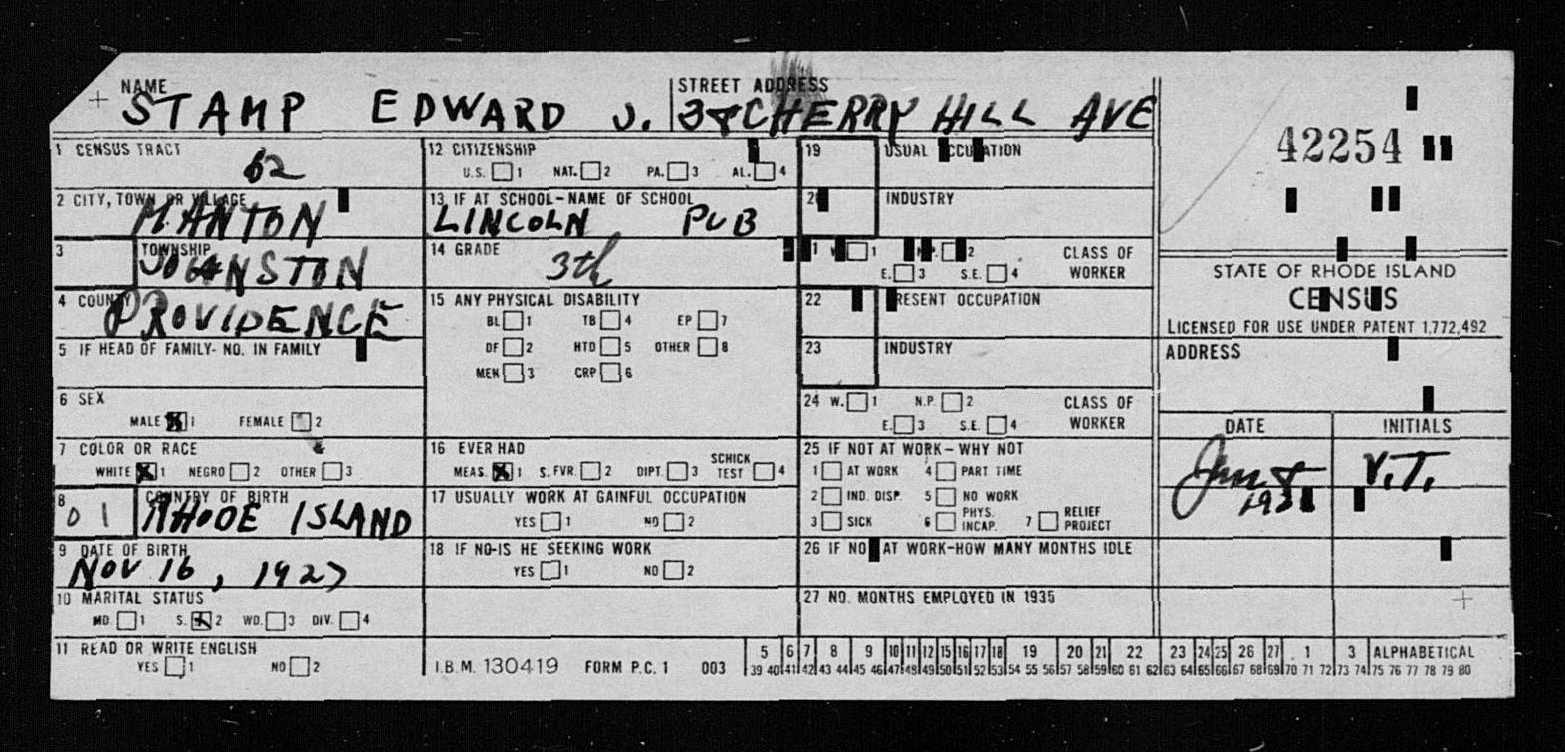 NAME STREET ADDRESS
STAMP EDWARD J. 38 CHERRY HILL AVE
42254
1 CENSUS TRACT
62
2 CITY, TOWN OR VILLAGE
MANTON
3 TOWNSHIP
JOHNSTON
4 COUNTY
PROVIDENCE
5 IF HEAD OF FAMILY- NO. IN FAMILY
6 SEX
MALE 1 FEMALE 2
7 COLOR OR RACE
WHITE 1 NEGRO 2 OTHER 3
8 COUNTRY OF BIRTH
01 RHODE ISLAND
9 DATE OF BIRTH
NOV 16, 1927
10 MARITAL STATUS
MD. 1 S. 2 WD. 3 DIV. 4
11 READ OR WRITE ENGLISH
YES 1 NO 2
12 CITIZENSHIP
U.S. 1 NAT. 2 PA. 3 AL. 4
13 IF AT SCHOOL-NAME OF SCHOOL
LINCOLN PUB
14 GRADE
3th
15 ANY PHYSICAL DISABILITY
BL 1 TB 4 EP 7
DF 2 HTD 5 OTHER 8
MEN 3 CRP 6
16 EVER HAD
MEAS. 1 S. FVR. 2 DIPT. 3 SCHICK TEST 4
17 USUALLY WORK AT GAINFUL OCCUPATION
YES 1 NO 2
18 IF NO-IS HE SEEKING WORK
YES 1 NO 2
I.B.M. 130419 FORM P.C. 1 003
19 USUAL OCCUPATION
20 INDUSTRY
21 W. 1 N.P. 2 CLASS OF
E. 3 S.E. 4 WORKER
22 PRESENT OCCUPATION
23 INDUSTRY
24 W. 1 N.P. 2 CLASS OF
E. 3 S.E. 4 WORKER
25 IF NOT AT WORK-WHY NOT
1 AT WORK 4 PART TIME
2 IND. DISP. 5 NO WORK
3 SICK 6 PHYS. INCAP. 7 RELIEF PROJECT
26 IF NOT AT WORK-HOW MANY MONTHS IDLE
27 NO. MONTHS EMPLOYED IN 1935
STATE OF RHODE ISLAND
CENSUS
LICENSED FOR USE UNDER PATENT 1,772,492
ADDRESS
DATE INITIALS
V.T.
5 6 7 8 9 10 11 12 15 16 17 18 19 20 21 22 23 24 25 26 27 1 3 ALPHABETICAL
39 40 41 42 43 44 45 46 47 48 49 50 51 52 53 54 55 56 57 58 59 60 61 62 63 64 65 66 67 68 69 70 71 72 73 74 75 76 77 78 79 80